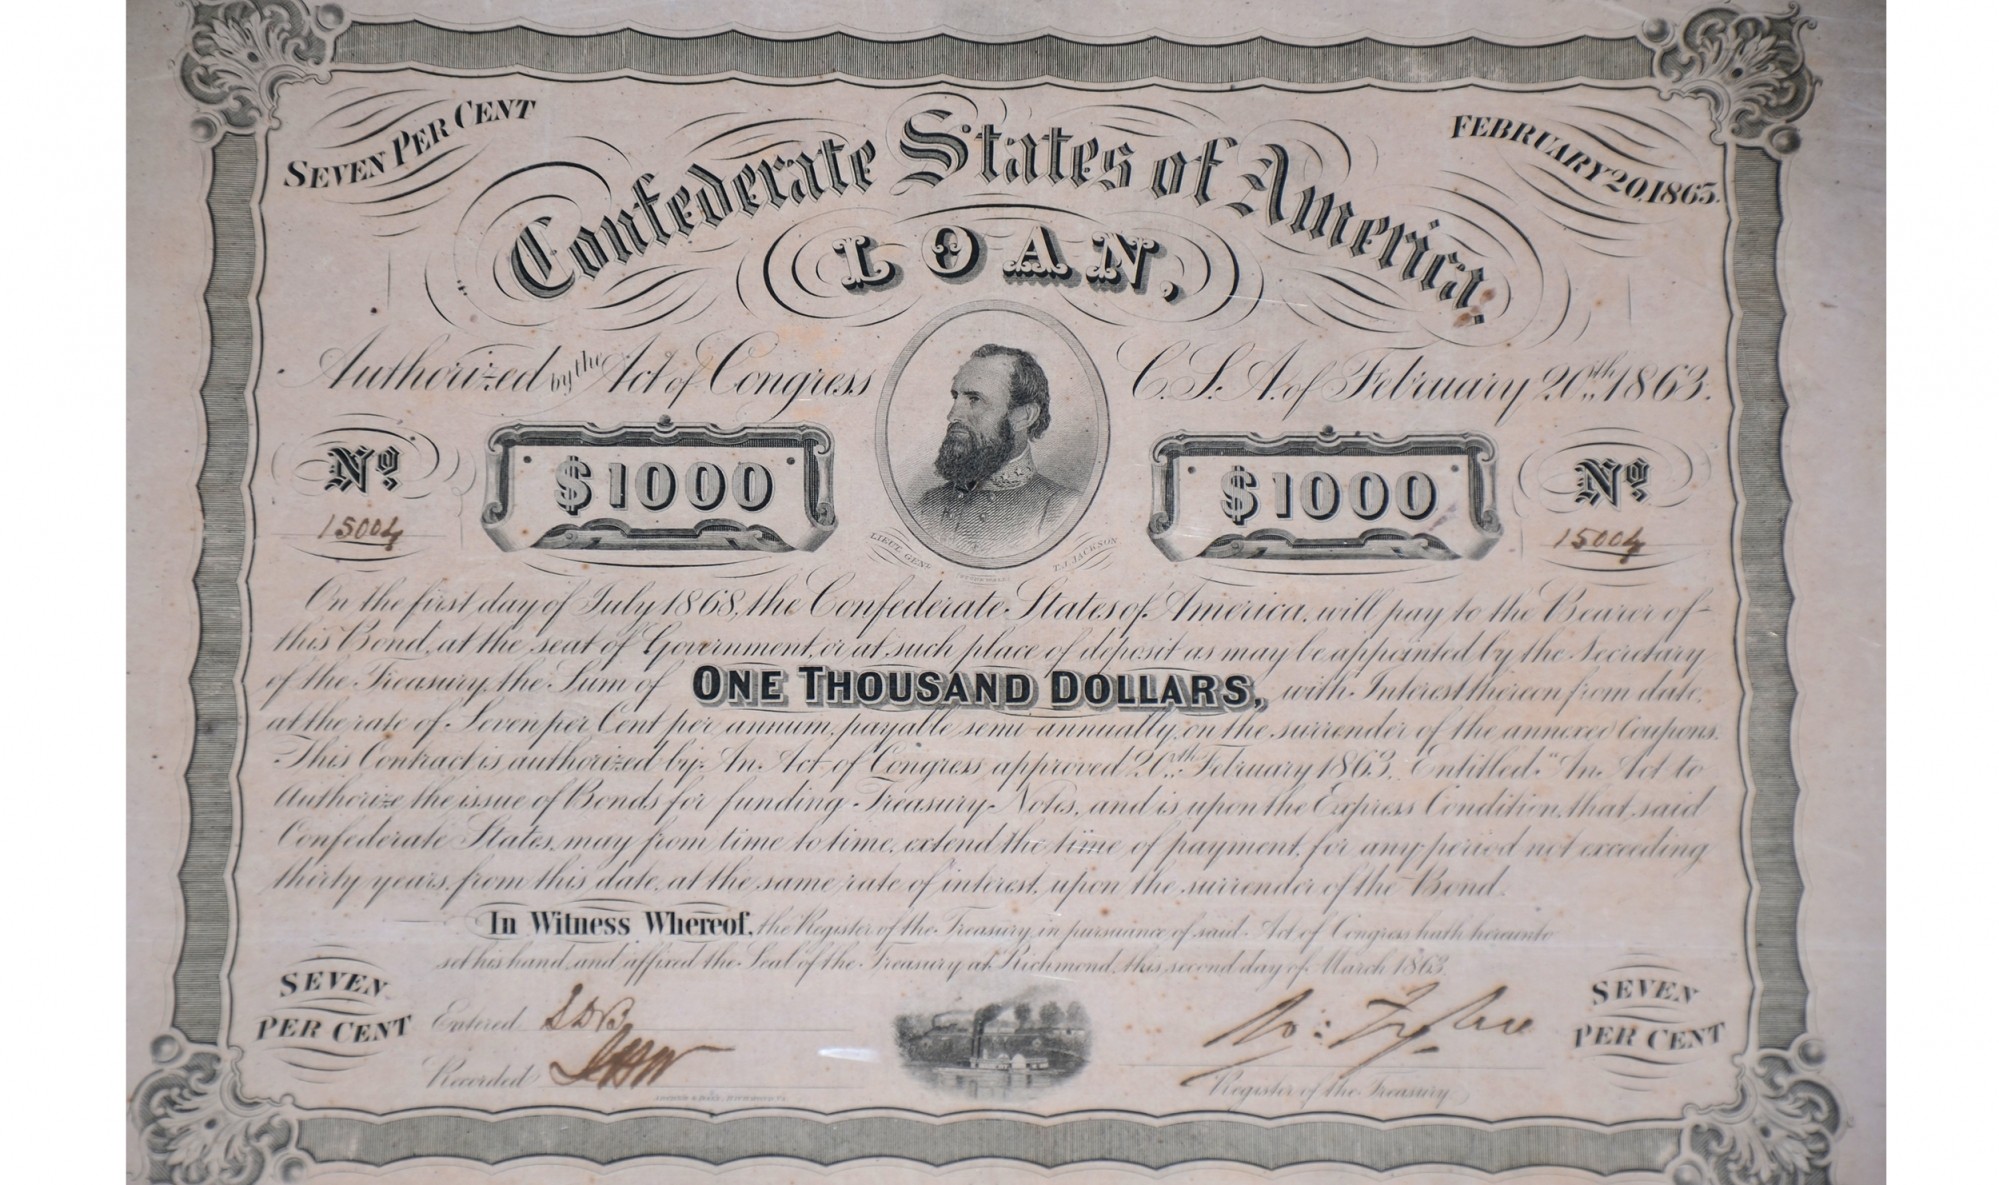 SEVEN PER CENT
FEBRUARY 20, 1863.
Confederate States of America
LOAN,
Authorized by the Act of Congress C.S.A. of February 20th, 1863.
No $1000 $1000 No
15004 15004
LIEUT. GENL. T. J. JACKSON
On the first day of July 1868, the Confederate States of America, will pay to the Bearer of
this Bond, at the seat of Government, or at such place of deposit as may be appointed by the Secretary
of the Treasury, the Sum of ONE THOUSAND DOLLARS, with Interest thereon from date,
at the rate of Seven per Cent per annum, payable semi-annually, on the surrender of the annexed Coupons.
This Contract is authorized by An Act of Congress, approved 20th February 1863, Entitled, "An Act to
Authorize the issue of Bonds for funding Treasury Notes, and is upon the Express Condition, that said
Confederate States, may from time to time, extend the time of payment, for any period not exceeding
thirty years, from this date, at the same rate of interest, upon the surrender of the Bond.
In Witness Whereof, the Register of the Treasury, in pursuance of said Act of Congress hath hereunto
set his hand, and affixed the Seal of the Treasury at Richmond, this second day of March 1863.
SEVEN
PER CENT
Entered
Recorded
Ro: Tyler
Register of the Treasury
SEVEN
PER CENT